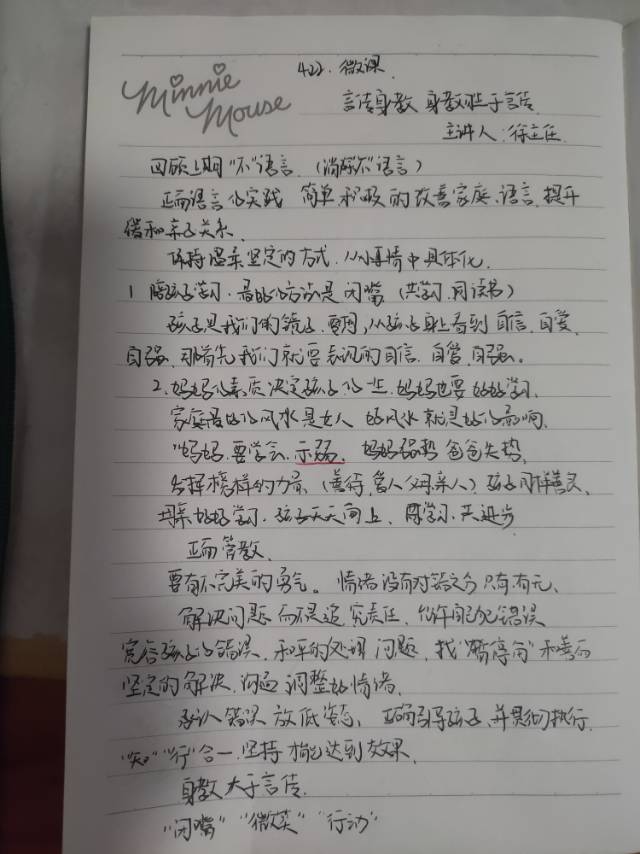 Minnie
Mouse
422. 微课
言传身教 身教胜于言传
主讲人:徐主任
回顾上期"不"语言.(消极"不"语言)
正面语言化实践 简单积极的改善家庭.语言.提升
谐和亲子关系.
保持温柔坚定的方式.从小事情中具体化.
1 陪孩子学习.最好的方法是闭嘴(共学习.同读书)
孩子是我们的镜子.要用,从孩子身上看到自信.自爱.
自强.那首先我们就要表现的自信.自爱.自强。
2.妈妈的素质决定孩子的一生.妈妈也要好好学习.
家庭最好的风水是女人 好风水就是好的影响.
"妈妈.要学会.示弱.妈妈强势爸爸失势.
发挥榜样的力量(善待.家人父母亲人)孩子同样善良.
母亲好好学习.孩子天天向上.陪学习.共进步
正面管教.
要有不完美的勇气。情绪没有对错之分只有有无.
解决问题而不是追究责任.允许自己犯错误
宽容孩子的错误.和平的处理问题.找"暂停角"和善而
坚定的解决.沟通调整好情绪.
承认错误放低姿态.正确引导孩子.并贯彻执行.
"知""行"合一.坚持才能达到效果.
身教大于言传.
"闭嘴""微笑""行动"